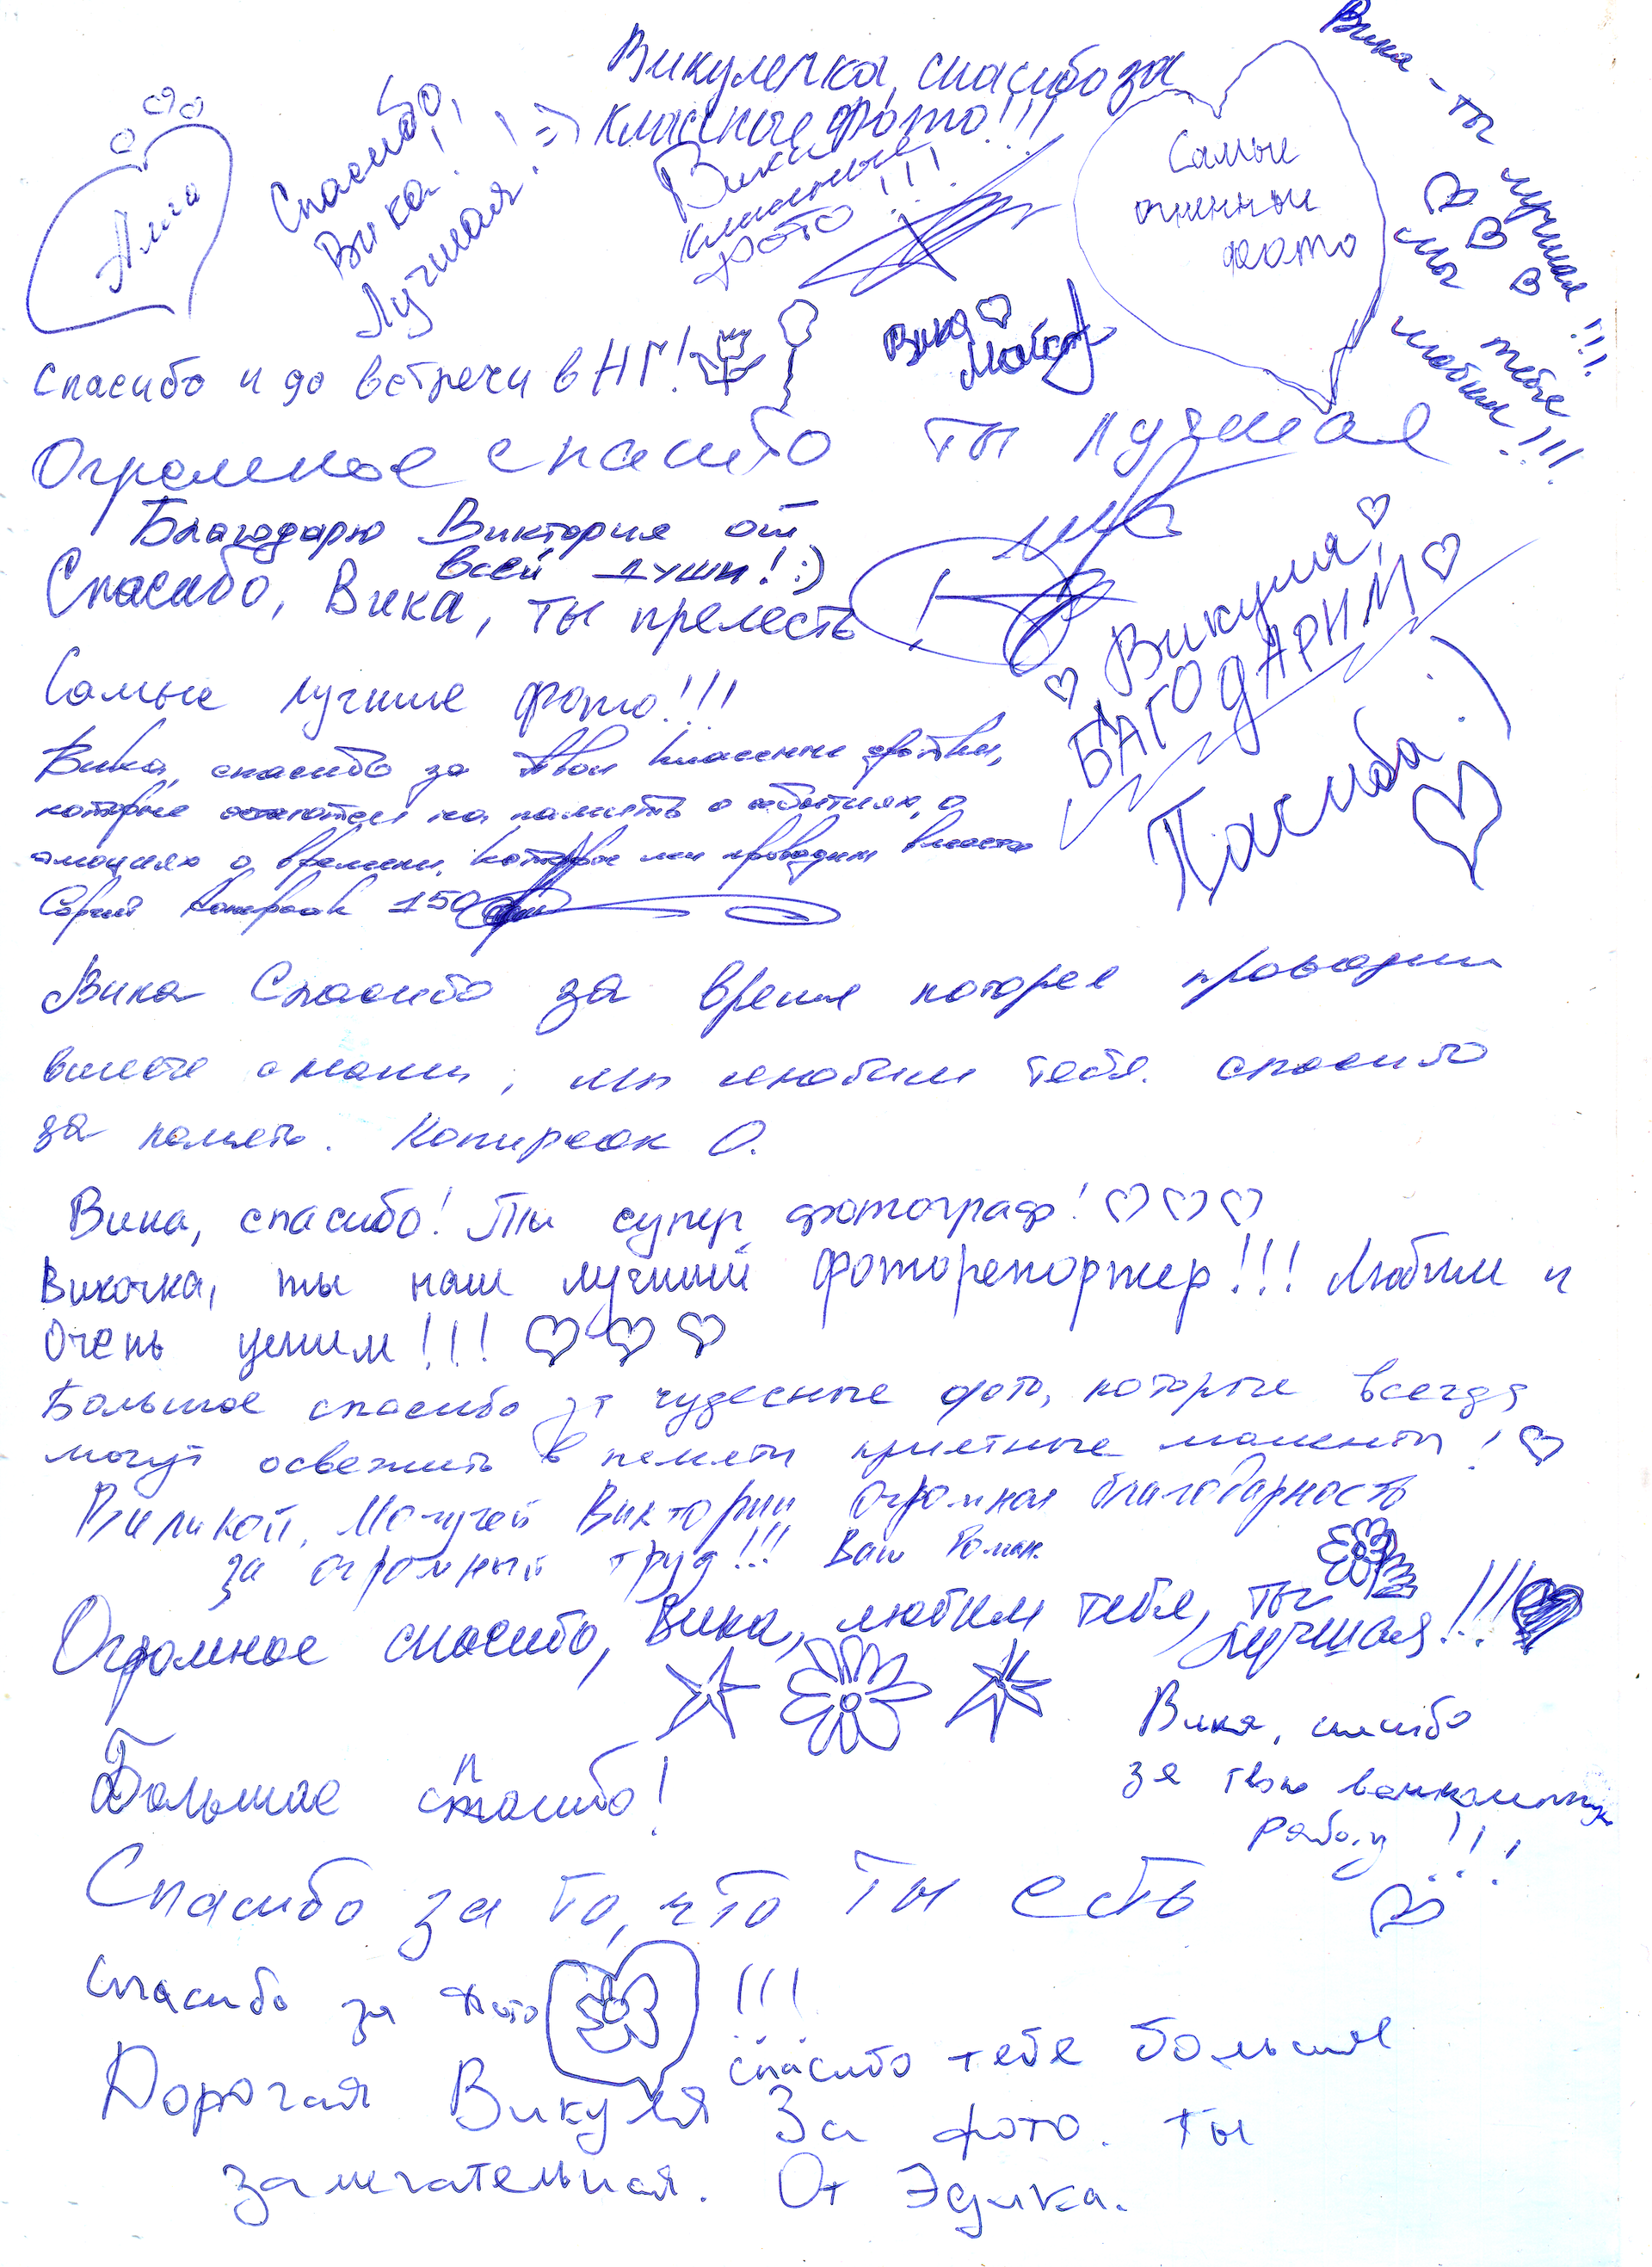 Викулечка, спасибо за
классные фото!!!
Спасибо,
Вика!!
Лучшая! =)
Вика
классные
фото!!!
Самые
огненные
фото
Вика - ты лучшая!!!
мы тебя
любим!!!
Вика
спасибо и до встречи в НГ!
Огромное спасибо ты лучшая
Благодарю Виктория от
всей души! :)
Спасибо, Вика, ты прелесть!
Викуля,
БЛАГОДАРИМ
Пасиба :)
Самые лучшие фото!!!
Вика, спасибо за твои классные фотки,
которые остаются на память о событиях, о
эмоциях о времени, которое мы проводим вместе
150
Вика Спасибо за время которое проводим
вместе с нами, мы любим тебя. спасибо
за память. Копирсак О.
Вика, спасибо! Ты супер фотограф!
Викочка, ты наш лучший фоторепортер!!! Любим и
очень ценим!!!
Большое спасибо за чудесные фото, которые всегда
могут освежить в памяти приятные моменты!
Виликой, Могучей Виктории огромная благодарность
за огромный труд!!! Ваш Роман.
Огромное спасибо, Вика, любим тебя, ты
лучшая!!!
Вика, спасибо
за твою
работу!!!
Большое спасибо!
Спасибо за то, что ты есть
Спасибо за фото!!!
Дорогая Викуля спасибо тебе большое
За фото. ты
замечательная. От Эдика.